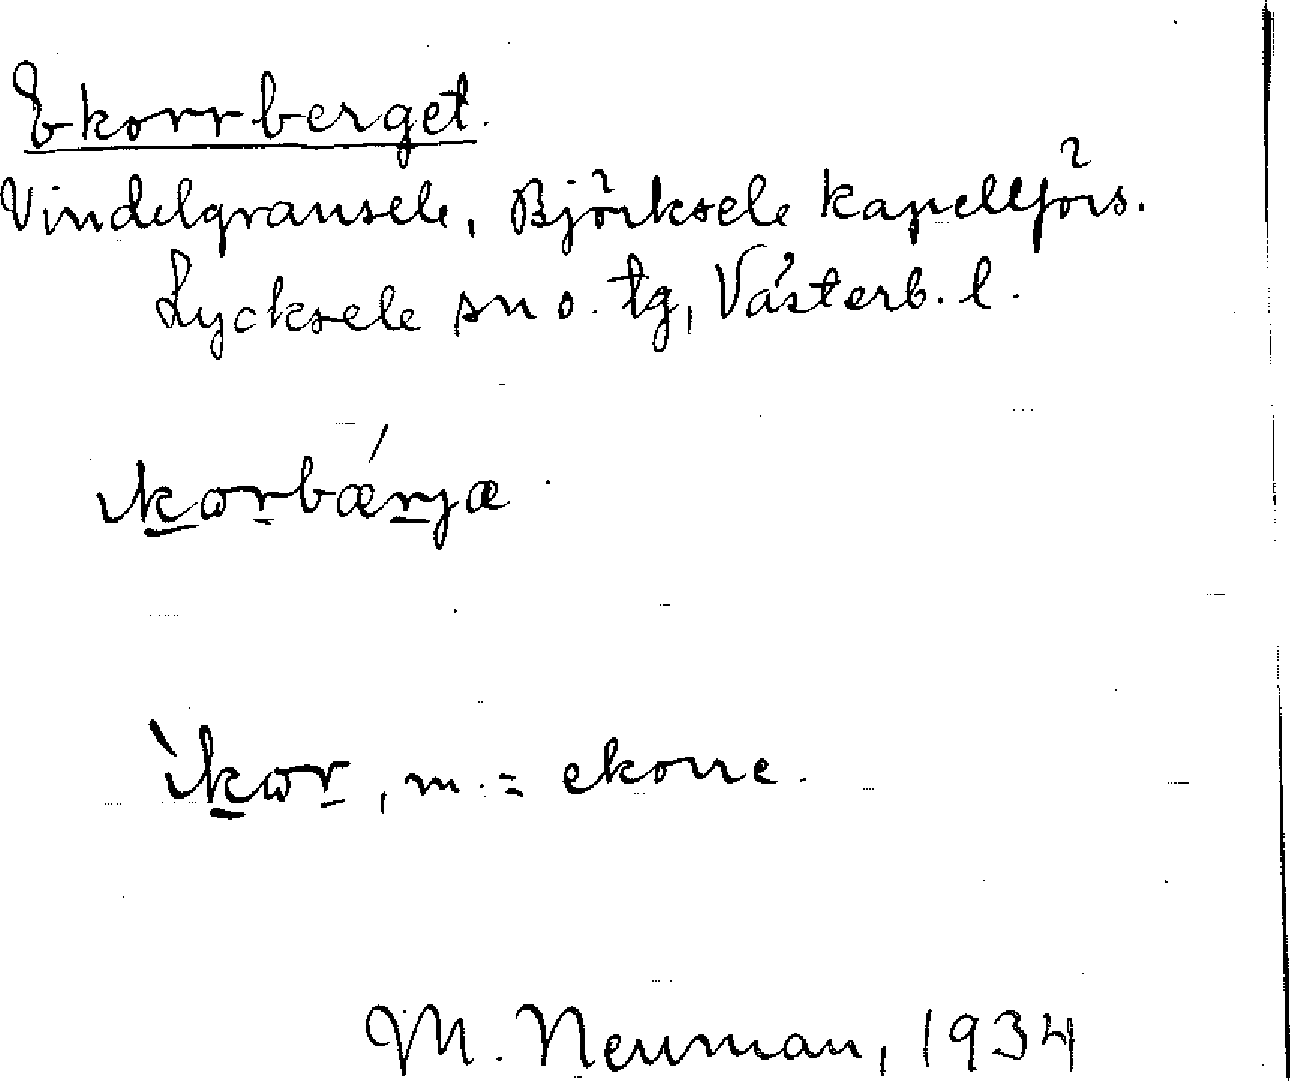 Ekorrberget.
Vindelgransele, Björksele kapellförs.
Lycksele sn o. tg, Västerb. l.
ıkorbǽrjæ
ìkor, m. = ekorre.
M. Neuman, 1934